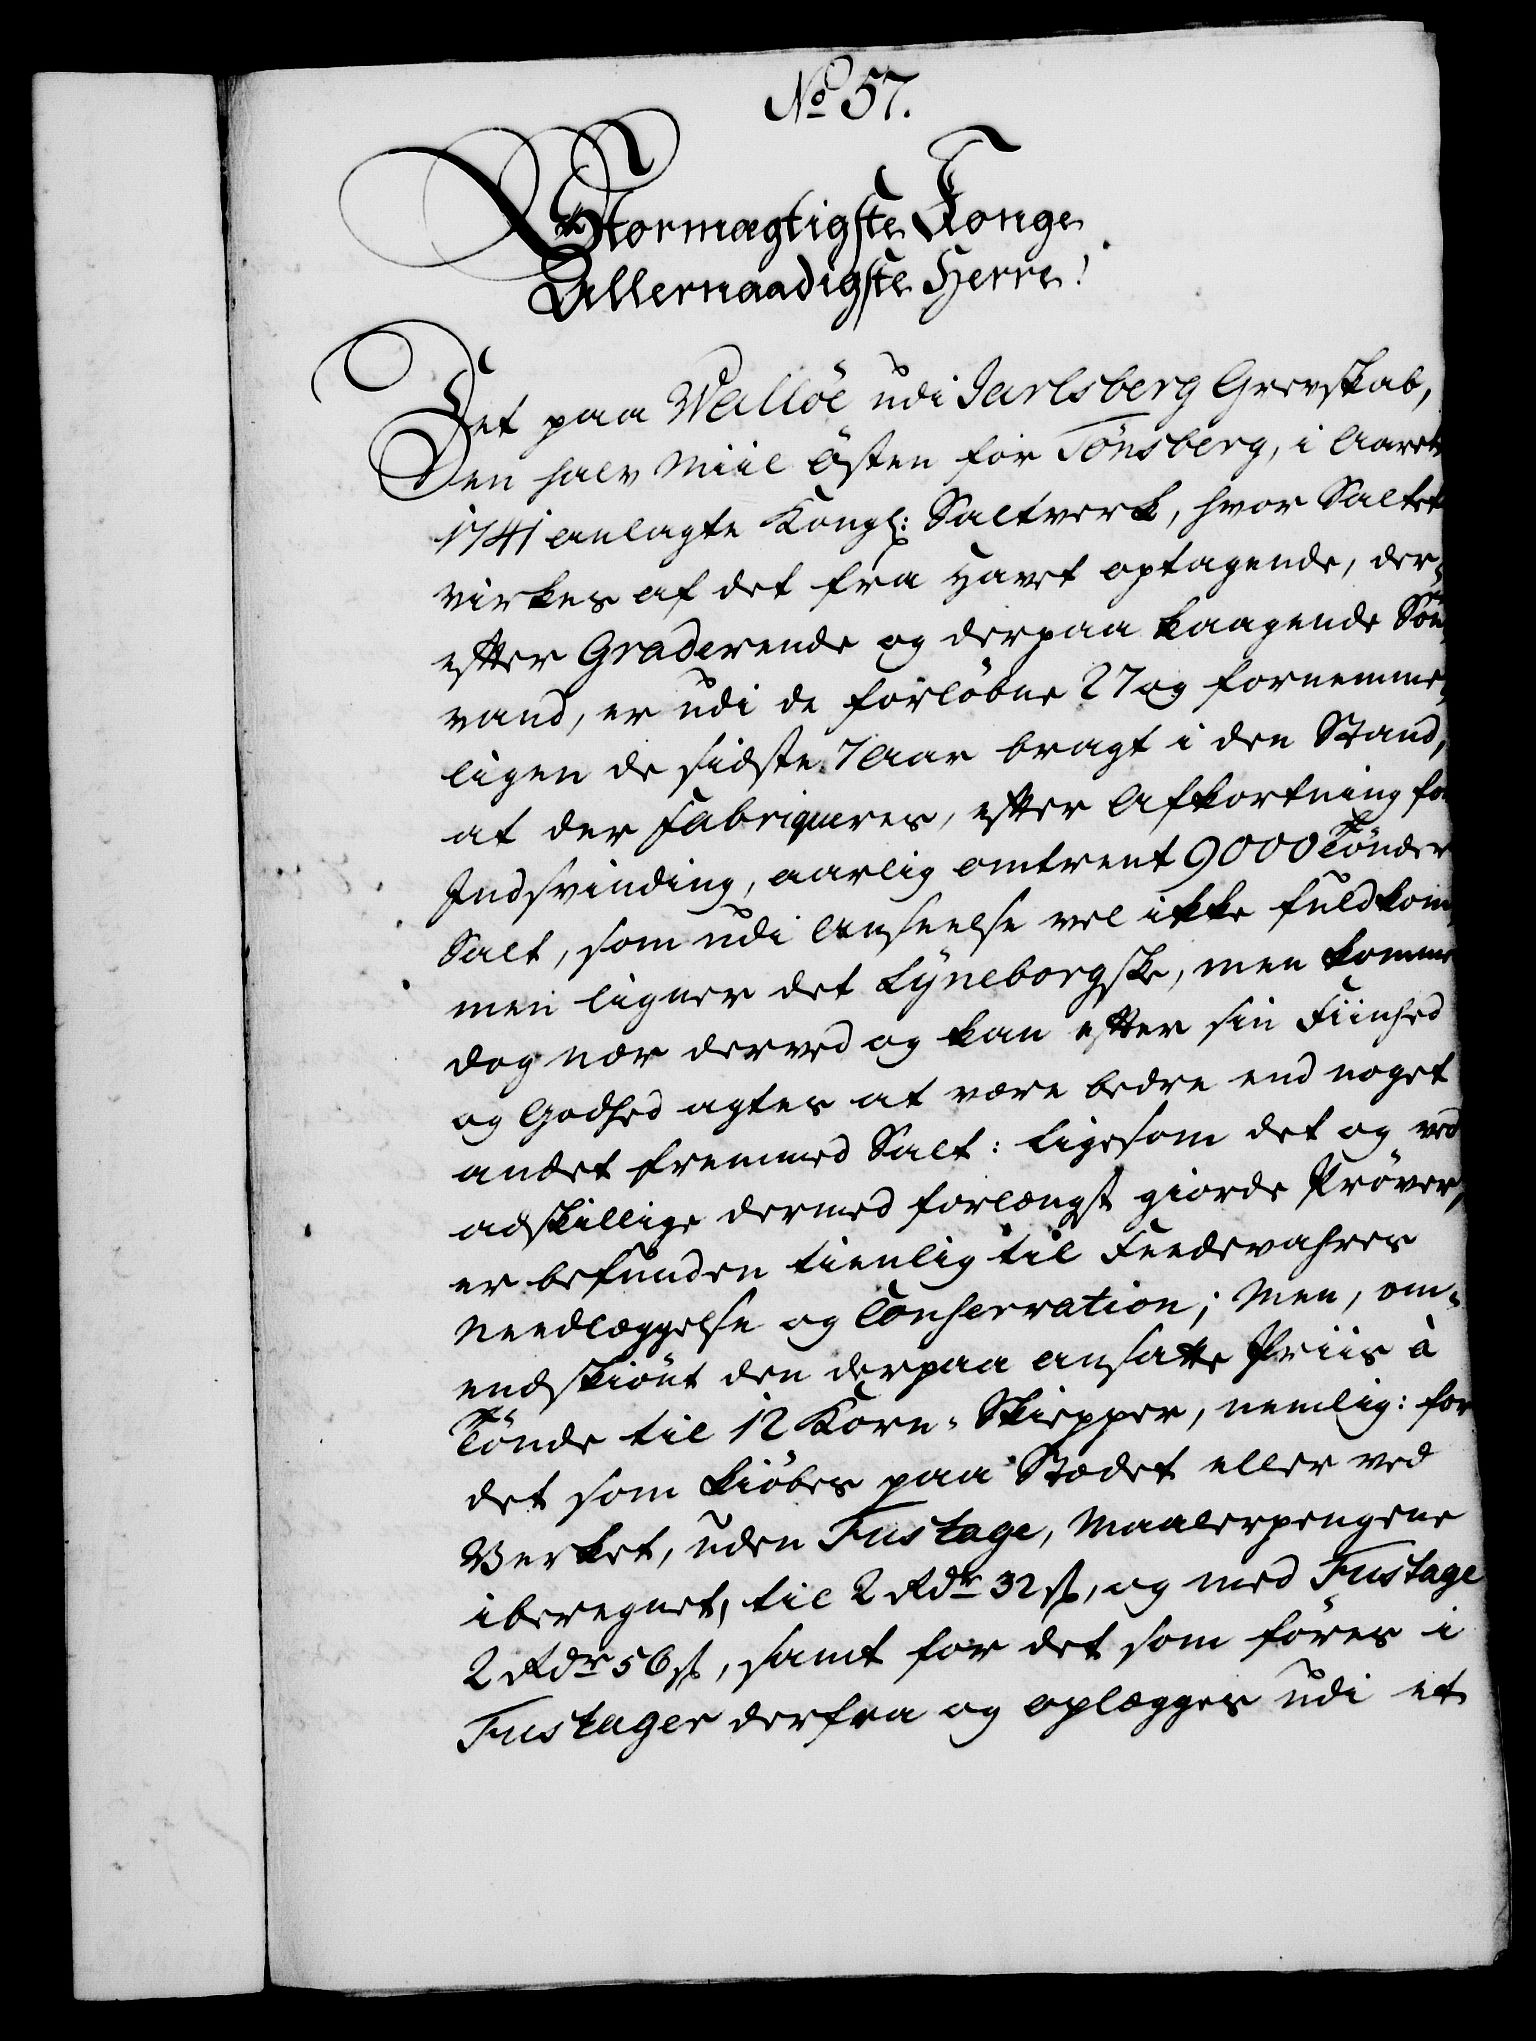 No 57.
Stormægtigste Konge
Allernaadigste Herre!
Det paa Walløe udi Jarlsberg Grevskab,
Een halv Miil Östen for Tönsberg, i Aaret
1741 anlagte Kongl: Saltverk, hvor Saltet
virkes af det fra Havet optagende, der-
efter Graderende og derpaa kaagende Söe-
vand, er udi de forløbne 27 og fornemme-
ligen de sidste 7 Aar bragt i den Stand,
at der Fabriqueres, efter Afkortning for
Indsvinding, aarlig omtrent 9000 Tönder
Salt, som udi Anseelse vel ikke fuldkom-
men ligner det Lÿneborgske, men kommer
dog nær derved og kan efter sin Fiinhed
og Godhed agtes at være bedre end noget
andet fremmed Salt: Ligesom det og ved
adskillige dermed forlængst giorde Pröver,
er befunden tienlig til Feedevahres
Needlæggelse og Conservation; Men, om-
endskiönt den derpaa ansatte Priis à
Tönde til 12 Korn-Skiepper, nemlig: for
det som kiöbes paa Stædet eller ved
Verket, uden Fustage, Maalerpengene
iberegnet, til 2 Rdr 32 ß, og med Fustage
2 Rdr 56 ß, samt for det som föres i
Fustager derfra og oplægges udi et